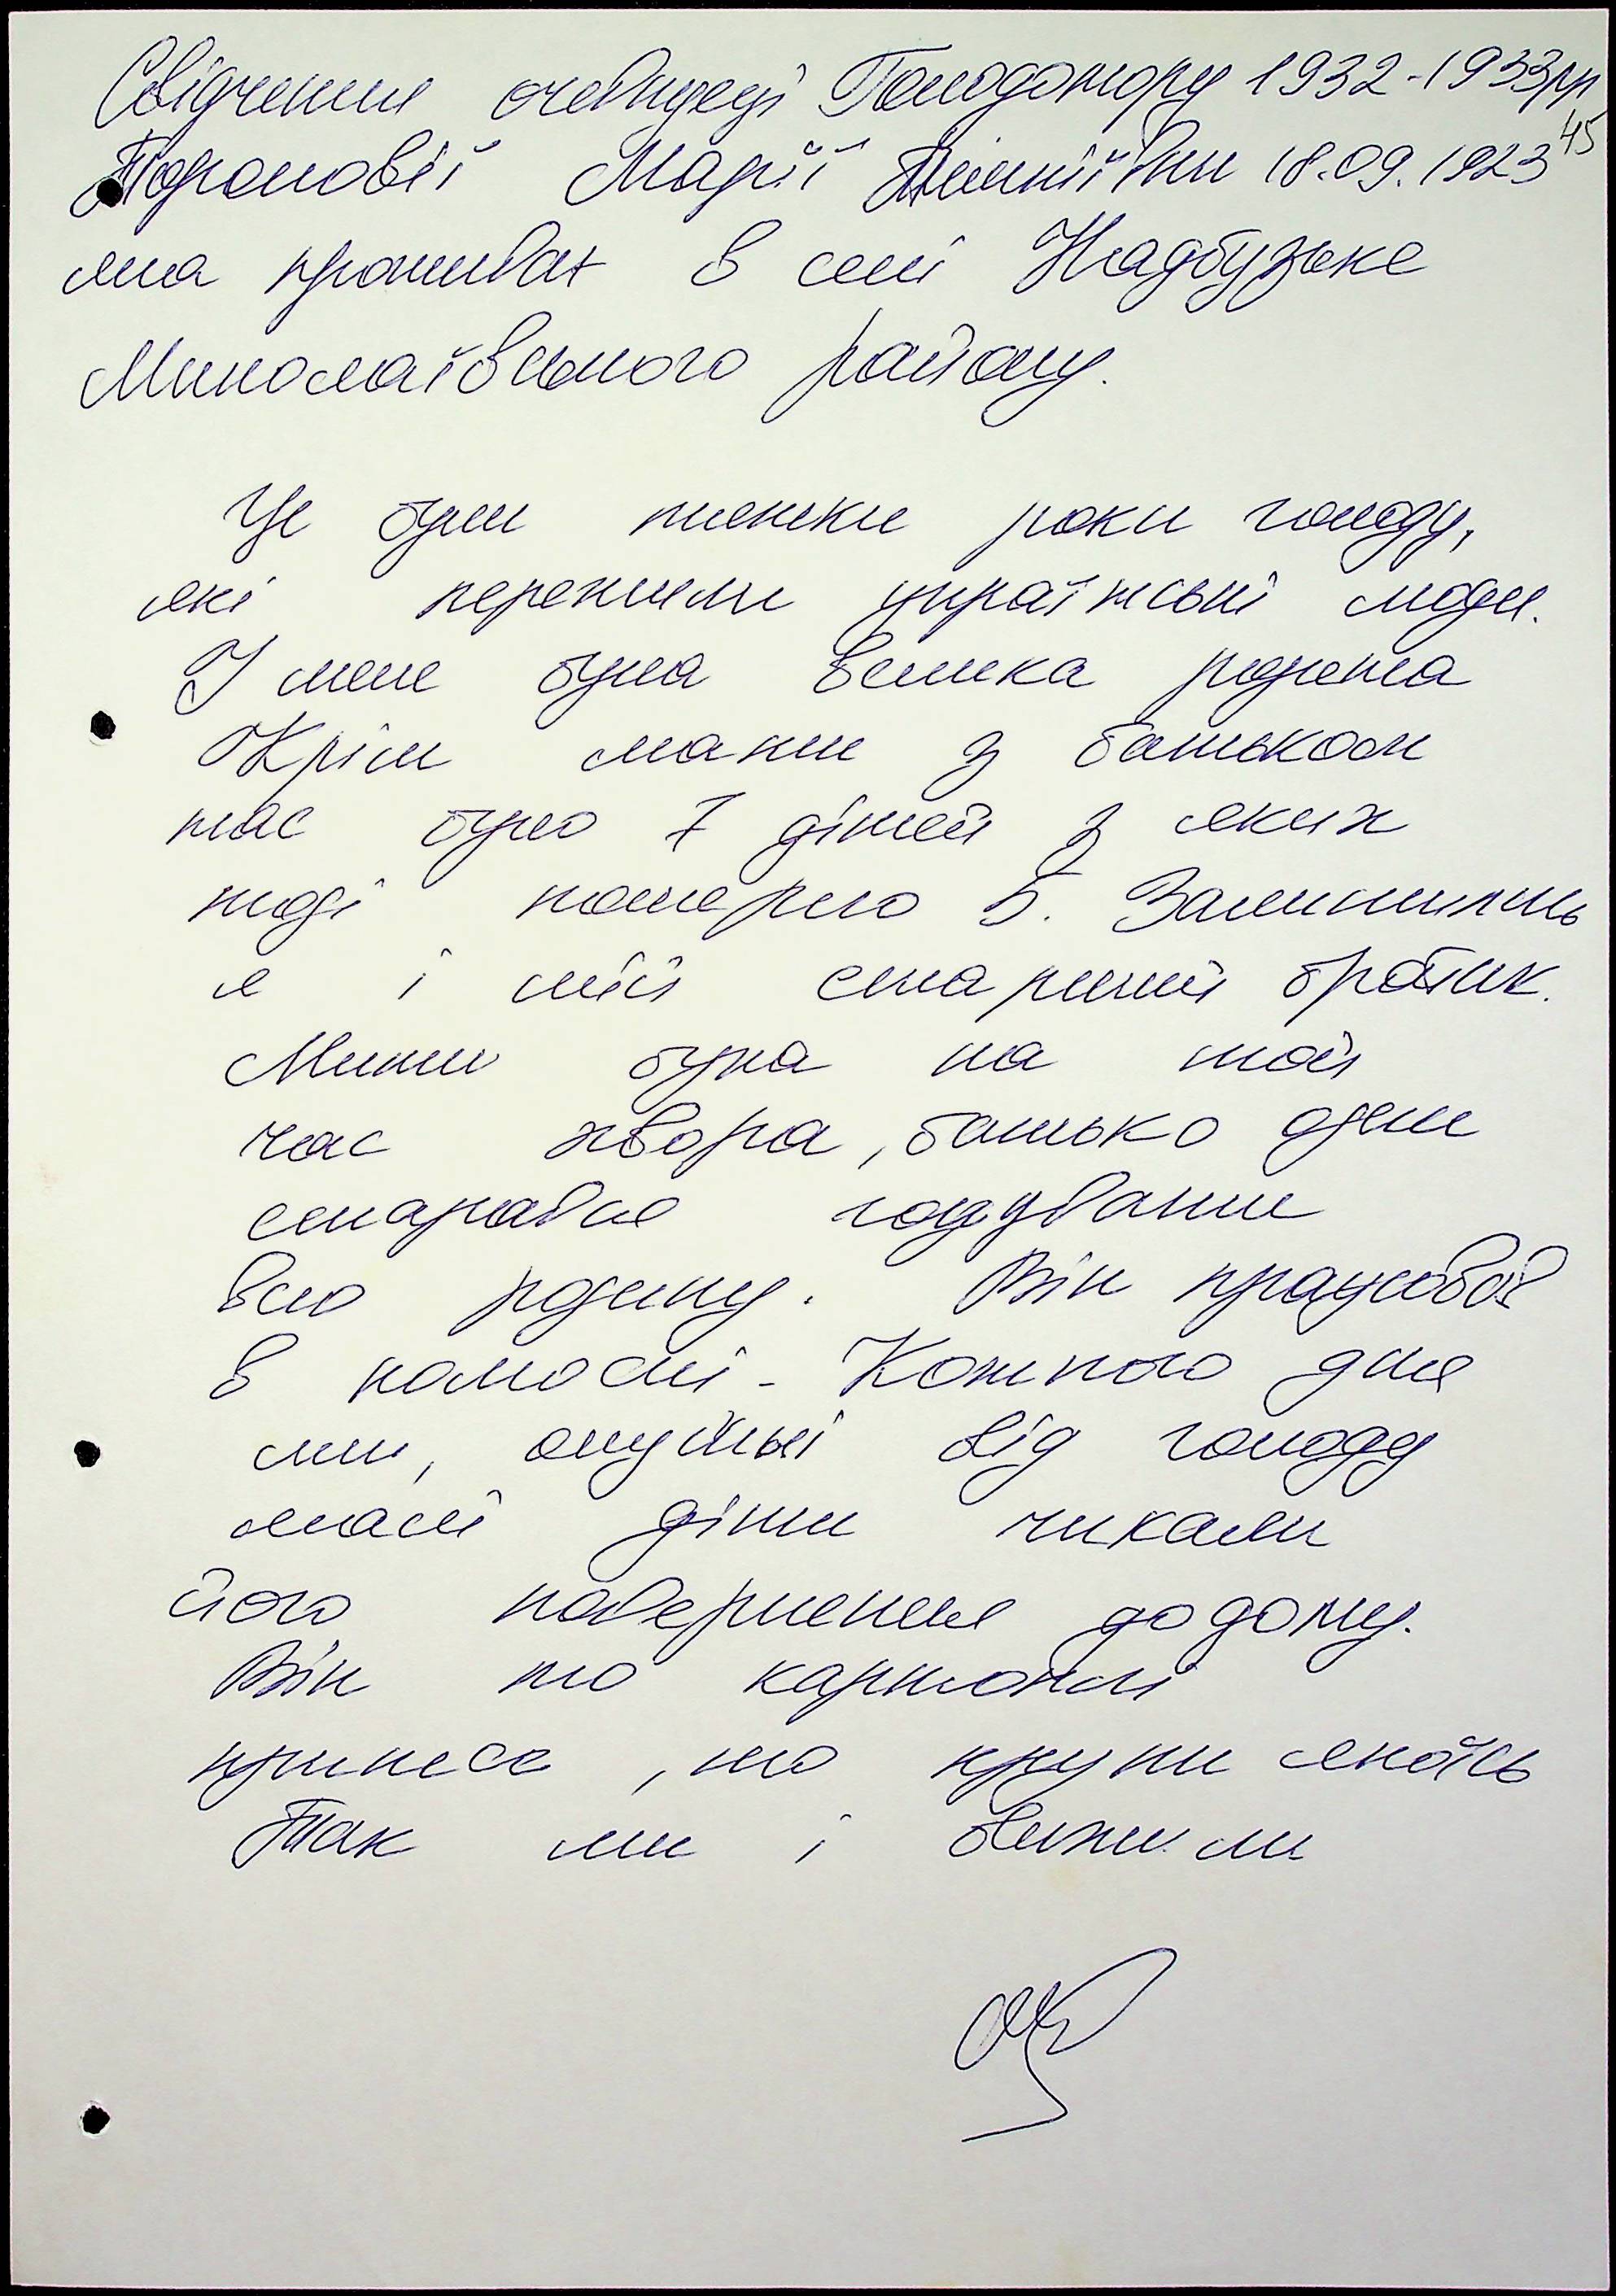 Свідчення очевидеці Голодомору 1932-1933рр
45
Марії 18.09.1923
яка проживає в селі Надбузьке
Миколаївського району.
Це були тяжки роки голоду,
які пережили українські люди.
У мене була велика родина
Крім мами з батьком
нас було 7 дітей з яких
тоді померло 5. Залишились
я і мій старший братик.
Мати була на той
час хвора, батько один
старався годувати
всю родину. Він працював
в колгоспі. Кожного дня
ми, опухші від голоду
малі діти чикали
його повернення до дому.
Він то картоплі
принесе, то крупи якоїсь
Так ми і вижили